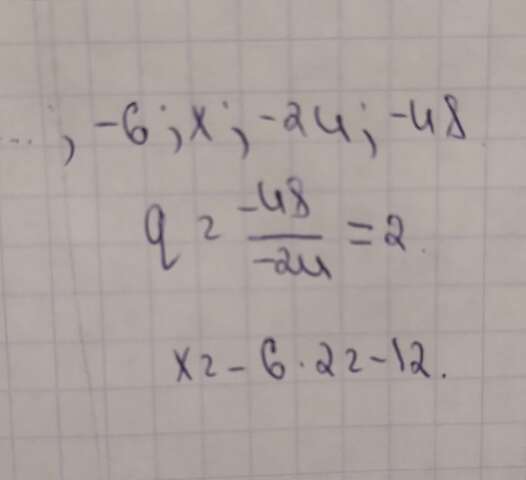 ...; -6; x; -24; -48
q = \frac{-48}{-24} = 2.
x = -6 · 2 = -12.